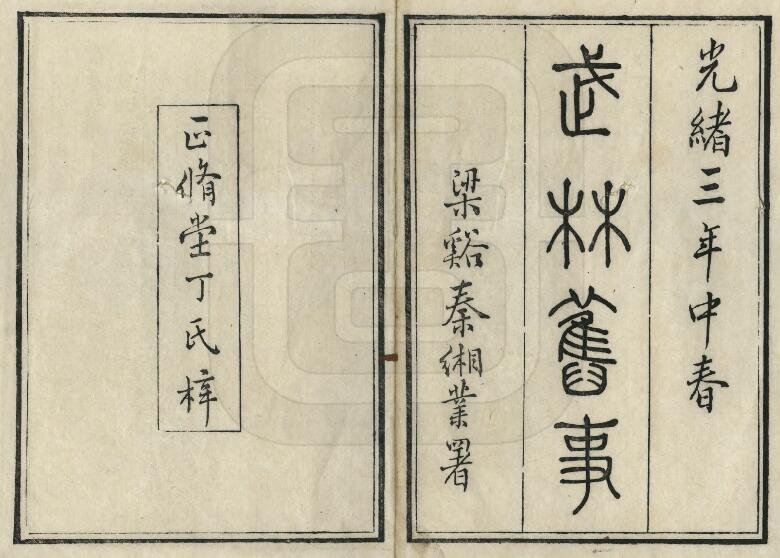 光緒三年中春
武林舊事
梁谿秦緗業署
正脩堂丁氏梓